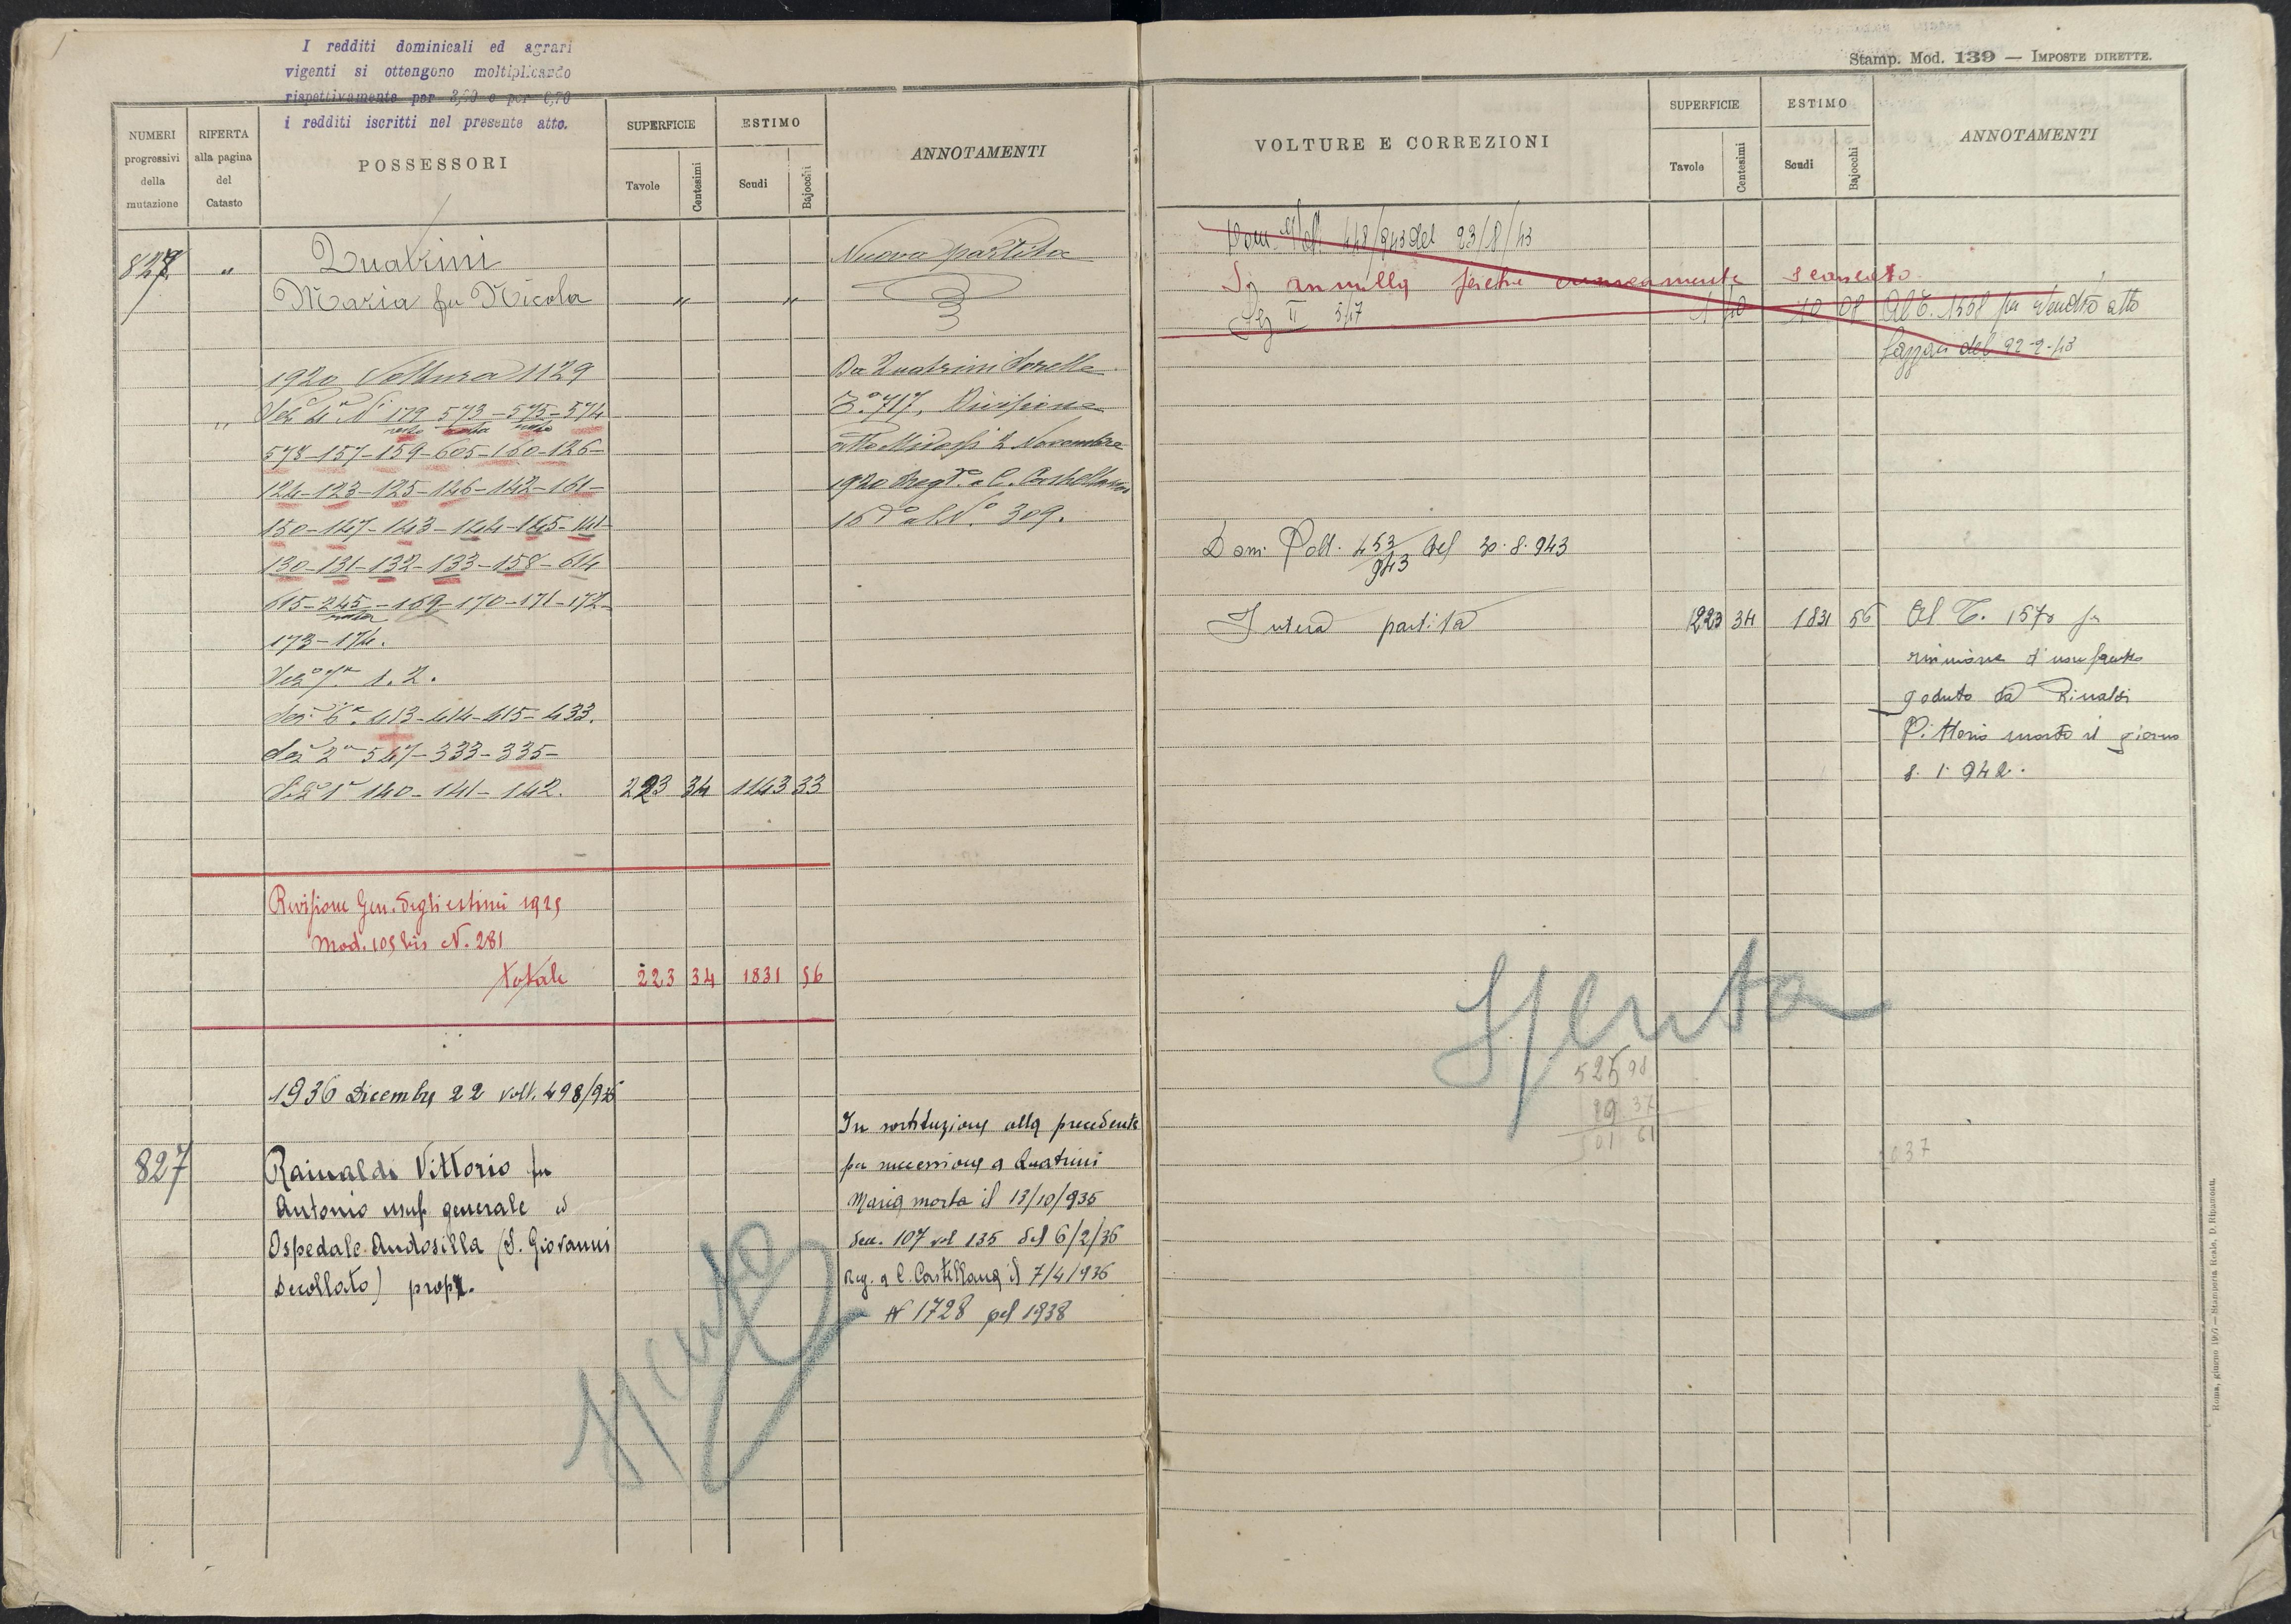 I redditi dominicali ed agrari
vigenti si ottengono moltiplicando
rispettivamente per 3,60 e per 6,70
i redditi iscritti nel presente atto.
NUMERI progressivi della mutazione
RIFERTA alla pagina del Catasto
POSSESSORI
SUPERFICIE
Tavole
Centesimi
ESTIMO
Scudi
Bajocchi
ANNOTAMENTI
827 " Quatrini
Maria fu Nicola " "
Nuova partita
1920 Voltura 1129
" Sez 4a N 179 573 - 575 - 574
578 - 157 - 159 - 605 - 160 - 126 -
124 - 123 - 125 - 146 - 142 - 161 -
150 - 147 - 143 - 144 - 145 - 141 -
130 - 131 - 132 - 133 - 158 - 614
615 - 245 - 169 - 170 - 171 - 172 -
173 - 174.
Sez 7a 1. 2.
Sez 6a 413 - 414 - 415 - 433.
Sez 2a 547 - 333 - 335 -
Sez 1a 140 - 141 - 142. 223 34 1143 33
Da Quatrini Sorelle
T.o 717, Divisione
atto 2 Novembre
1920 Reg.to a C. Castellana
16 do al N.o 309.
Revisione Gen. degli estimi 1925
Mod. 105 bis N. 281
totale 223 34 1831 56
1936 Dicembre 22 volt. 498/936
827 Rainaldi Vittorio fu
Antonio usuf. generale e
Ospedale Andosilla (S. Giovanni
Decollato) propr.
In sostituzione alla precedente
per successione a Quatrini
Maria morta il 13/10/935
den. 107 vol 135 del 6/2/36
Reg. a C. Castellana il 7/4/936
N 1728 pel 1938
Spenta
Stamp. Mod. 139 — IMPOSTE DIRETTE.
VOLTURE E CORREZIONI
SUPERFICIE
Tavole
Centesimi
ESTIMO
Scudi
Bajocchi
ANNOTAMENTI
Dom. Volt. 448/943 del 23/8/43
Si annulla perchè erroneamente scaricato
Sez II 547 1 40 10 08 Al T. 1558 per vendita atto
del 22-2-43
Dom. Volt. 453/943 del 30.8.943
Intera partita 223 34 1831 56 Al T. 1570 per
riunione d'usufrutto
goduto da Rinaldi
Vittorio morto il giorno
8.1.942.
Spenta
525 98
501 61
037
Roma, giugno 1907 — Stamperia Reale, D. Ripamonti.